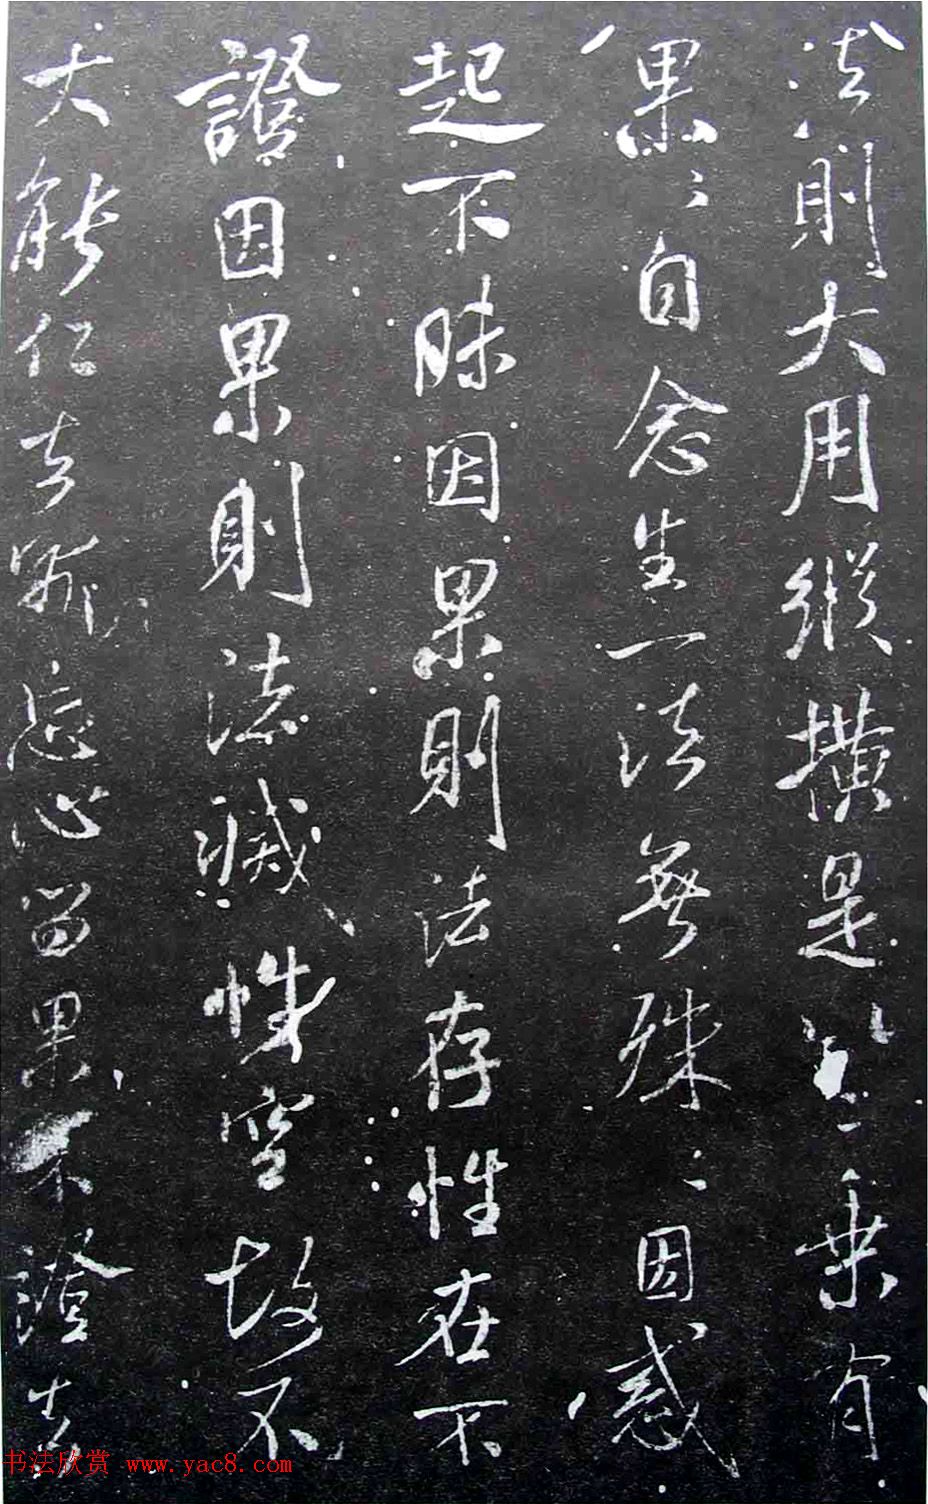 法則大用縱橫是以一乘有
果〻自念生一法無殊〻因惑
起不昧因果則法存性在不
證因果則法滅性空故不
大能仁言斷忘心留果不證言
书法欣赏 www.yac8.com